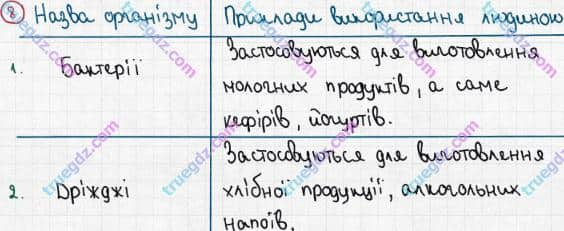 8 Назва організму Приклади використання людиною
Застосовуються для виготовлення
1. Бактерії молочних продуктів, а саме
кефірів, йогуртів.
Застосовуються для виготовлення
2. Дріжджі хлібної продукції, алкогольних
напоїв.
truegdz.com